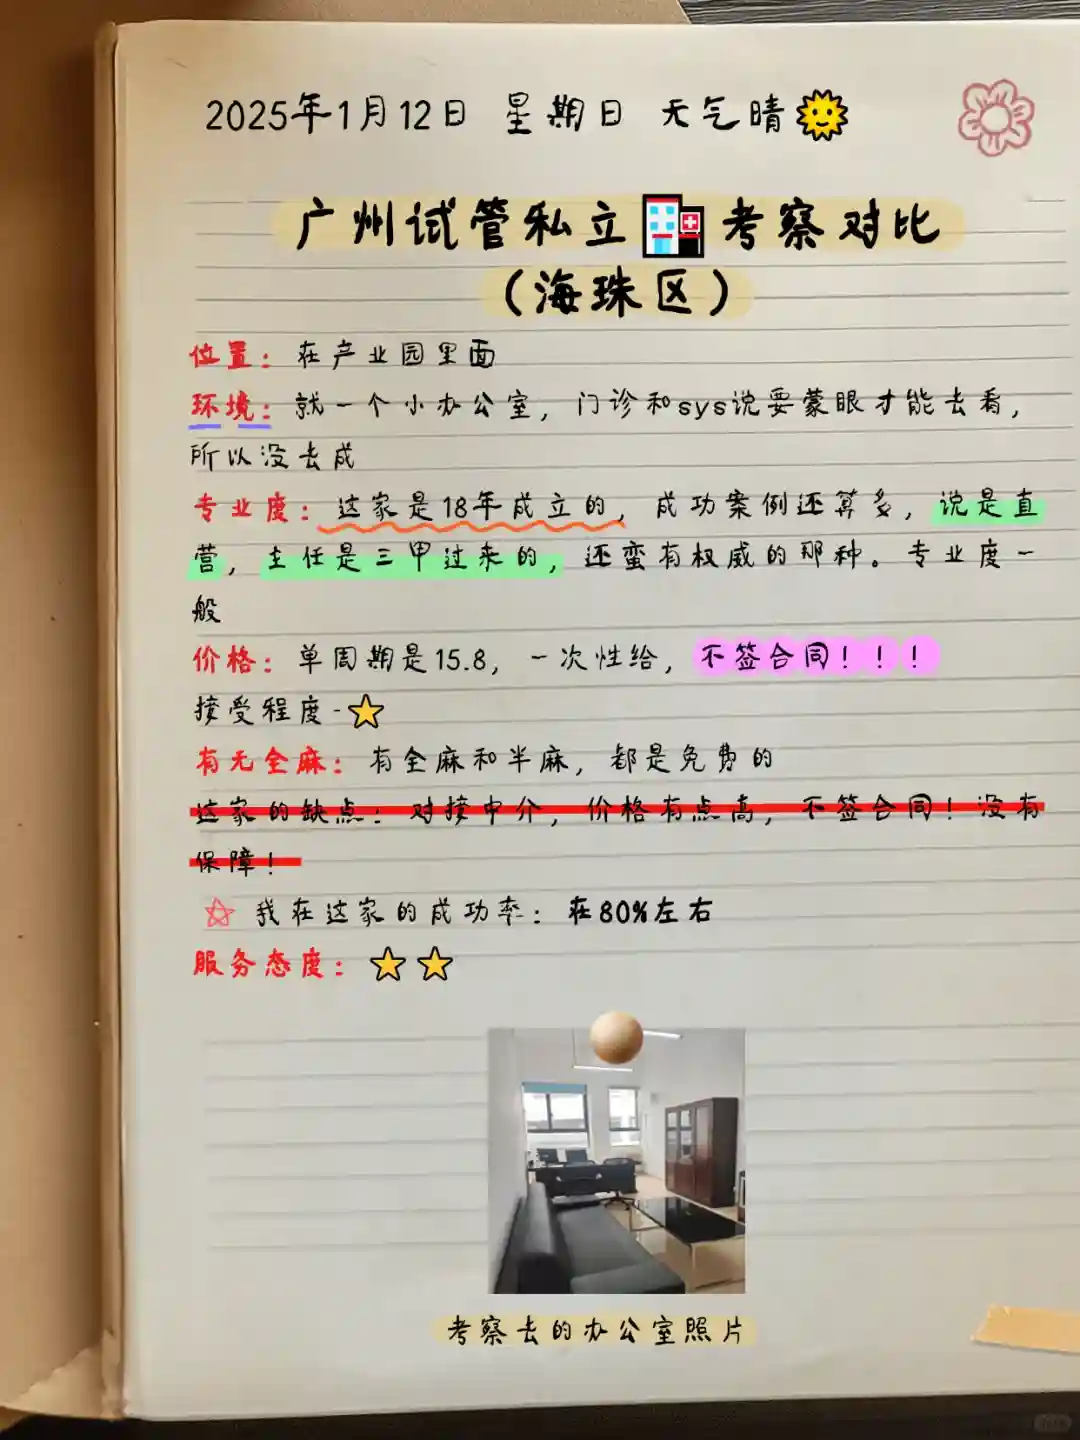 2025年1月12日 星期日 天气晴
广州试管私立🏥考察对比
（海珠区）
位置：在产业园里面
环境：就一个小办公室，门诊和sys说要蒙眼才能去看，
所以没去成
专业度：这家是18年成立的，成功案例还算多，说是直
营，主任是三甲过来的，还蛮有权威的那种。专业度一
般
价格：单周期是15.8，一次性给，不签合同！！！
接受程度-⭐
有无全麻：有全麻和半麻，都是免费的
这家的缺点：对接中介，价格有点高，不签合同！没有
保障！
我在这家的成功率：在80%左右
服务态度：⭐⭐
考察去的办公室照片